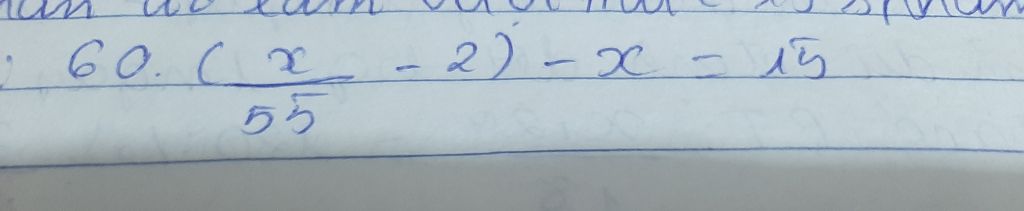 60. (x/55 - 2) - x = 15